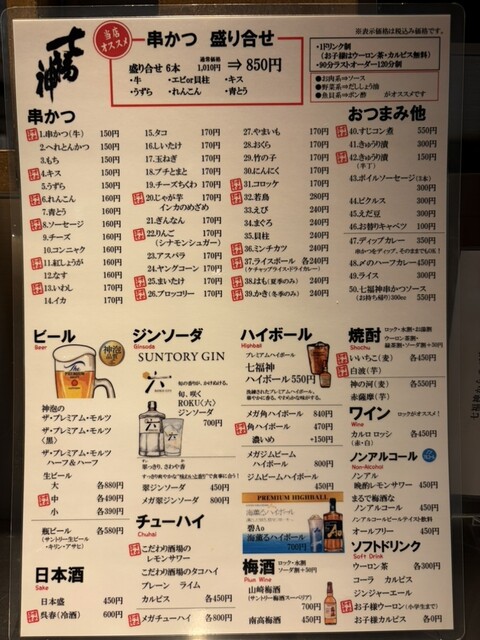 七福神
当店
オススメ
串かつ 盛り合せ
盛り合せ 6本 通常価格 1,010円 ⇒ 850円
・牛 ・エビor貝柱 ・キス
・うずら ・れんこん ・青とう
※表示価格は税込み価格です。
・1ドリンク制
(お子様はウーロン茶・カルピス無料)
・90分ラストオーダー120分制
●お肉系⇒ソース
●野菜系⇒だししょう油
●魚貝系⇒ポン酢 がオススメです
串かつ
1.串かつ(牛) 150円
2.へれとんかつ 150円
3.もち 150円
4.キス 150円
5.うずら 150円
6.れんこん 160円
7.青とう 160円
8.ソーセージ 160円
9.チーズ 160円
10.コンニャク 160円
11.紅しょうが 160円
12.なす 160円
13.いわし 160円
14.イカ 170円
15.タコ 170円
16.しいたけ 170円
17.玉ねぎ 170円
18.プチとまと 170円
19.チーズちくわ 170円
20.じゃが芋 170円
インカのめざめ
21.ぎんなん 170円
22.りんご 170円
(シナモンシュガー)
23.アスパラ 170円
24.ヤングコーン 170円
25.まいたけ 170円
26.ブロッコリー 170円
27.やまいも 170円
28.おくら 170円
29.竹の子 170円
30.にんにく 170円
31.コロッケ 170円
32.若鳥 280円
33.えび 240円
34.まぐろ 240円
35.貝柱 240円
36.ミンチカツ 240円
37.ライスボール 各240円
(ケチャップライス・ドライカレー)
38.はも(夏季のみ) 240円
39.かき(冬季のみ) 240円
おつまみ他
40.すじコン煮 550円
41.きゅうり漬 300円
42.きゅうり漬 150円
(半丁)
43.ボイルソーセージ(3本)
300円
44.ピクルス 300円
45.えだ豆 300円
46.お替りキャベツ 100円
47.ディップカレー 350円
串かつをディップ、そのままでもOK!
48.〆のハーフカレー 450円
49.ライス 300円
50.七福神串かつソース
(お持ち帰り)300cc 550円
ビール
Beer
神泡
神泡の
ザ・プレミアム・モルツ
ザ・プレミアム・モルツ
〈黒〉
ザ・プレミアム・モルツ
ハーフ&ハーフ
生ビール
大 各880円
中 各490円
小 各390円
瓶ビール 各580円
(サントリー生ビール
・キリン・アサヒ)
日本酒
Sake
日本盛 450円
呉春(冷酒) 600円
ジンソーダ
Ginsoda
SUNTORY GIN
六
旬の香りが、かけぬける。
旬、咲く
ROKU〈六〉
ジンソーダ
700円
翠っきり、さわや香
翠ジンソーダ 450円
メガ翠ジンソーダ 800円
チューハイ
Chuhai
こだわり酒場の
レモンサワー
こだわり酒場のタコハイ
プレーン ライム
カルピス 各450円
メガチューハイ 各800円
ハイボール
Highball
プレミアムハイボール
七福神
ハイボール 550円
メガ角ハイボール 840円
角ハイボール 470円
濃いめ +150円
メガジムビーム
ハイボール 800円
ジムビームハイボール
450円
PREMIUM HIGHBALL
碧Ao
海薫るハイボール
700円
梅酒
Plum Wine
ロック・水割
ソーダ割+30円
山崎梅酒
(サントリー梅酒スーペリア)
700円
南高梅酒 450円
焼酎
Shochu
ロック・水割・お湯割
ウーロン茶割・
緑茶割・ソーダ割+30円
いいちこ(麦) 各450円
白波(芋)
神の河(麦) 各550円
赤薩摩(芋)
ワイン
Wine
ロックがオススメ!
カルロ ロッシ 各450円
(赤・白)
ノンアルコール
Non-Alcohol
ノンアル
晩酌レモンサワー 450円
まるで梅酒な
ノンアルコール 450円
ノンアルコールビールテイスト飲料
オールフリー 450円
ソフトドリンク
Soft Drink
ウーロン茶 各300円
コーラ カルピス
ジンジャーエール
お子様ウーロン(小学生まで)
お子様カルピス 各0円